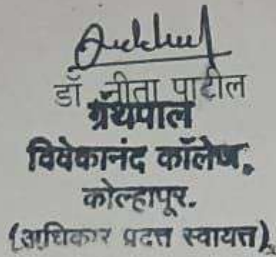 डॉ नीता पाटील
ग्रंथपाल
विवेकानंद कॉलेज,
कोल्हापूर.
(अधिकार प्रदत्त स्वायत्त)